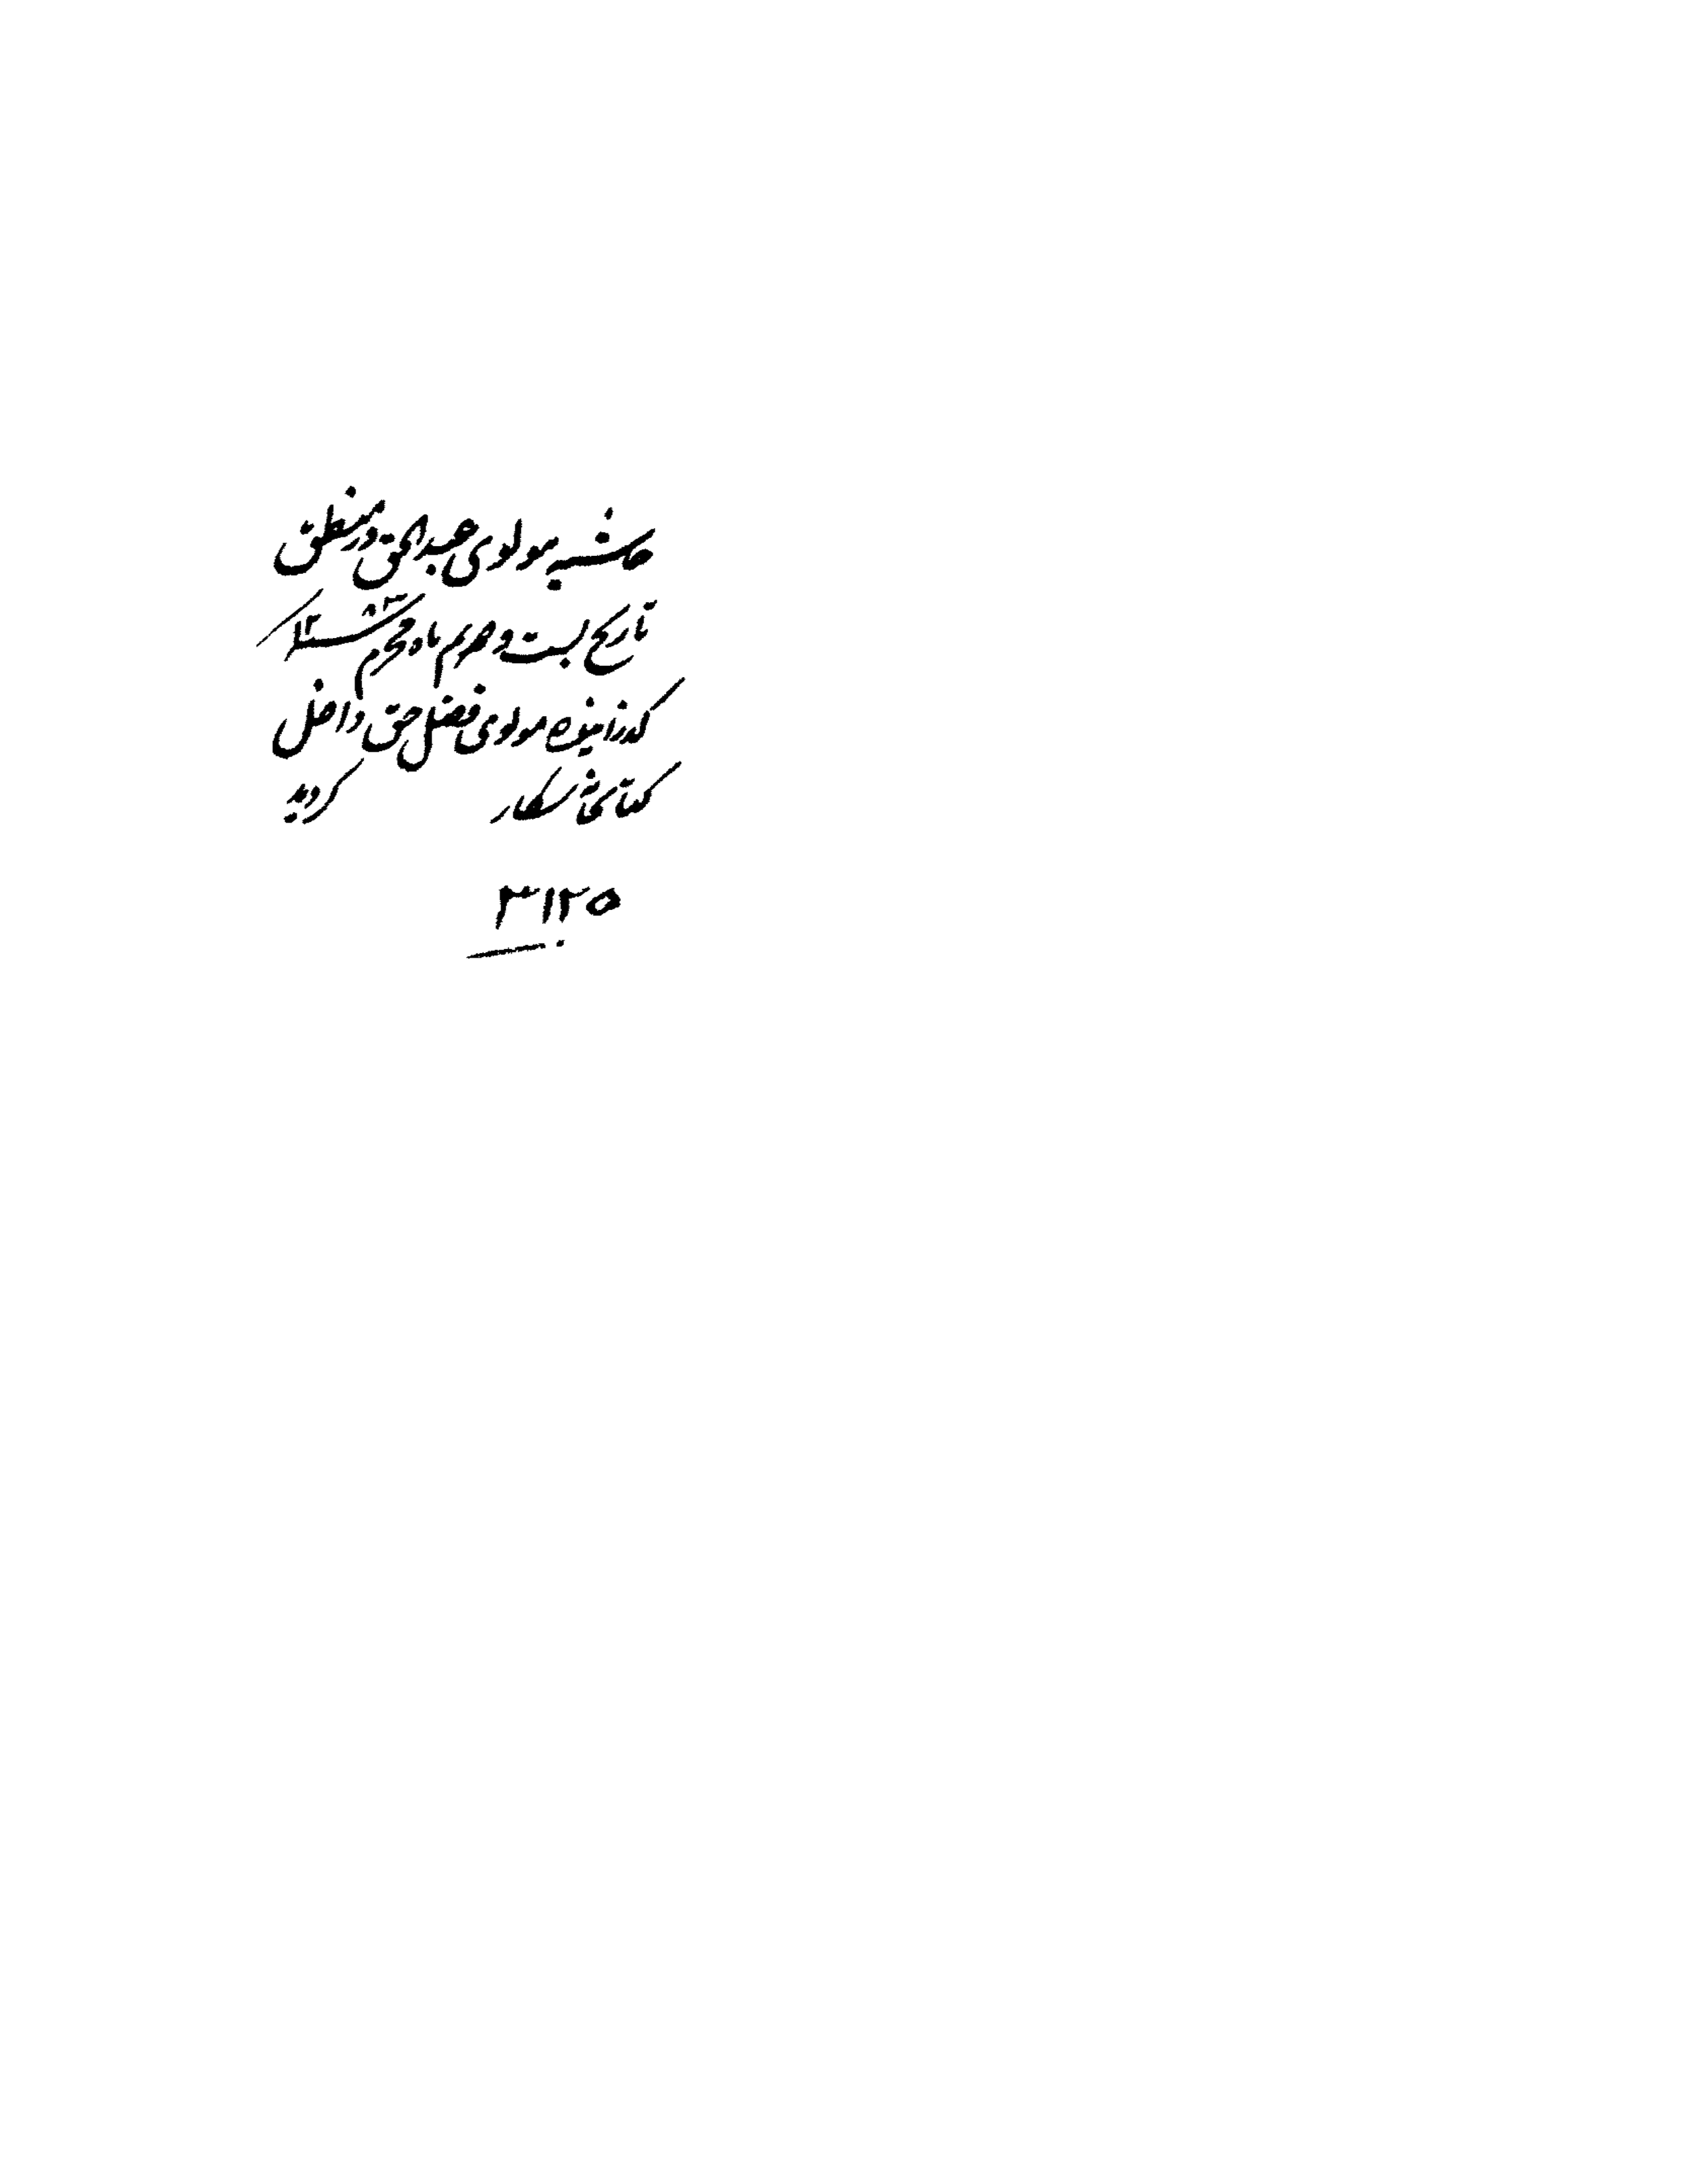 حاشیه مولوی عبدالحق در منطق
تاریخ بست و چهارم ماه محرم سنه ۱۲۸۳
گذرانیده مولوی فضل حق داخل
کتابخانه سرکار گردید
۳۱۲۵